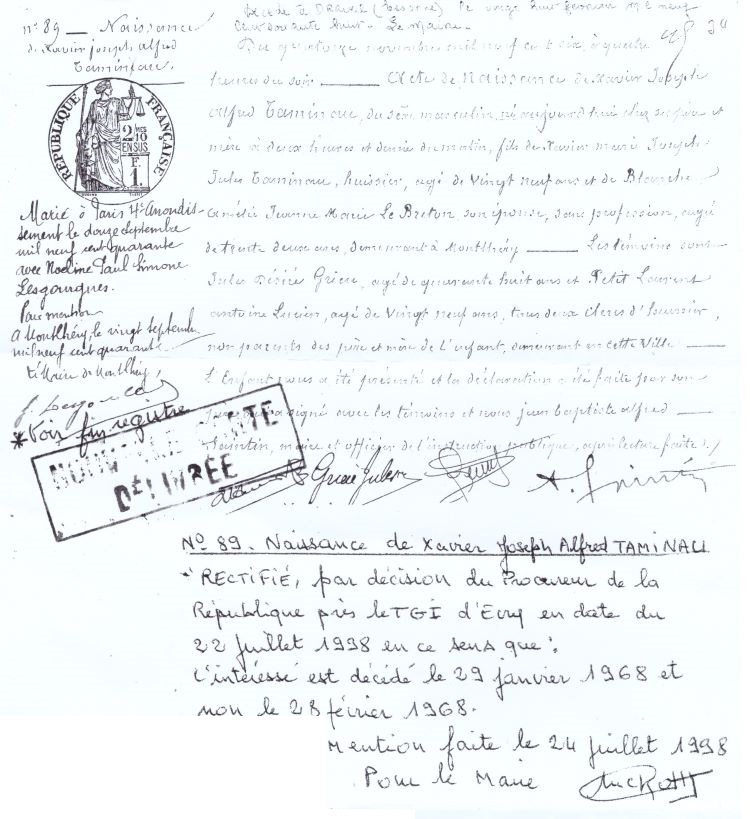 n° 89 — Naissance
de Xavier Joseph, Alfred
Taminau.
Décédé à DRAVEIL (Essonne) le vingt huit février mil neuf
cent soixante huit. Le Maire.
Du quatorze novembre mil neuf cent dix, à quatre
heures du soir — Acte de Naissance de Xavier Joseph
Alfred Taminau, du sexe masculin, né aujourd'hui chez ses père et
mère à deux heures et demie du matin, fils de Xavier Marie Joseph
Jules Taminau, huissier, âgé de vingt neuf ans et de Blanche
Amélie Jeanne Marie Le Breton, son épouse, sans profession, âgée
de trente deux ans, demeurant à Montlhéry — Les témoins sont
Jules Désiré Grieu, âgé de quarante huit ans et Petit Laurent
Antoine Lucien, âgé de vingt neuf ans, tous deux clercs d'huissier,
non parents des père et mère de l'enfant, demeurant en cette ville —
L'Enfant nous a été présenté et la déclaration a été faite par son
père qui a signé avec les témoins et nous Jean Baptiste Alfred —
Saintin, maire et officier de l'instruction publique, après lecture faite./.
RÉPUBLIQUE FRANÇAISE
2 MES
10
EN SUS
F.
1
Marié à Paris 4e Arrondis-
sement le douze septembre
mil neuf cent quarante
avec Noelme Paul Simone
Lesgourgues.
Pour mention
A Montlhéry, le vingt septembre
mil neuf cent quarante
Le Maire de Montlhéry,
* Voir fin registre
DÉLIVRÉE
N° 89. Naissance de Xavier Joseph Alfred TAMINAU
RECTIFIÉ, par décision du Procureur de la
République près le TGI d'Evry en date du
22 juillet 1998 en ce sens que :
L'intéressé est décédé le 29 janvier 1968 et
non le 28 février 1968.
Mention faite le 24 juillet 1998
Pour le Maire